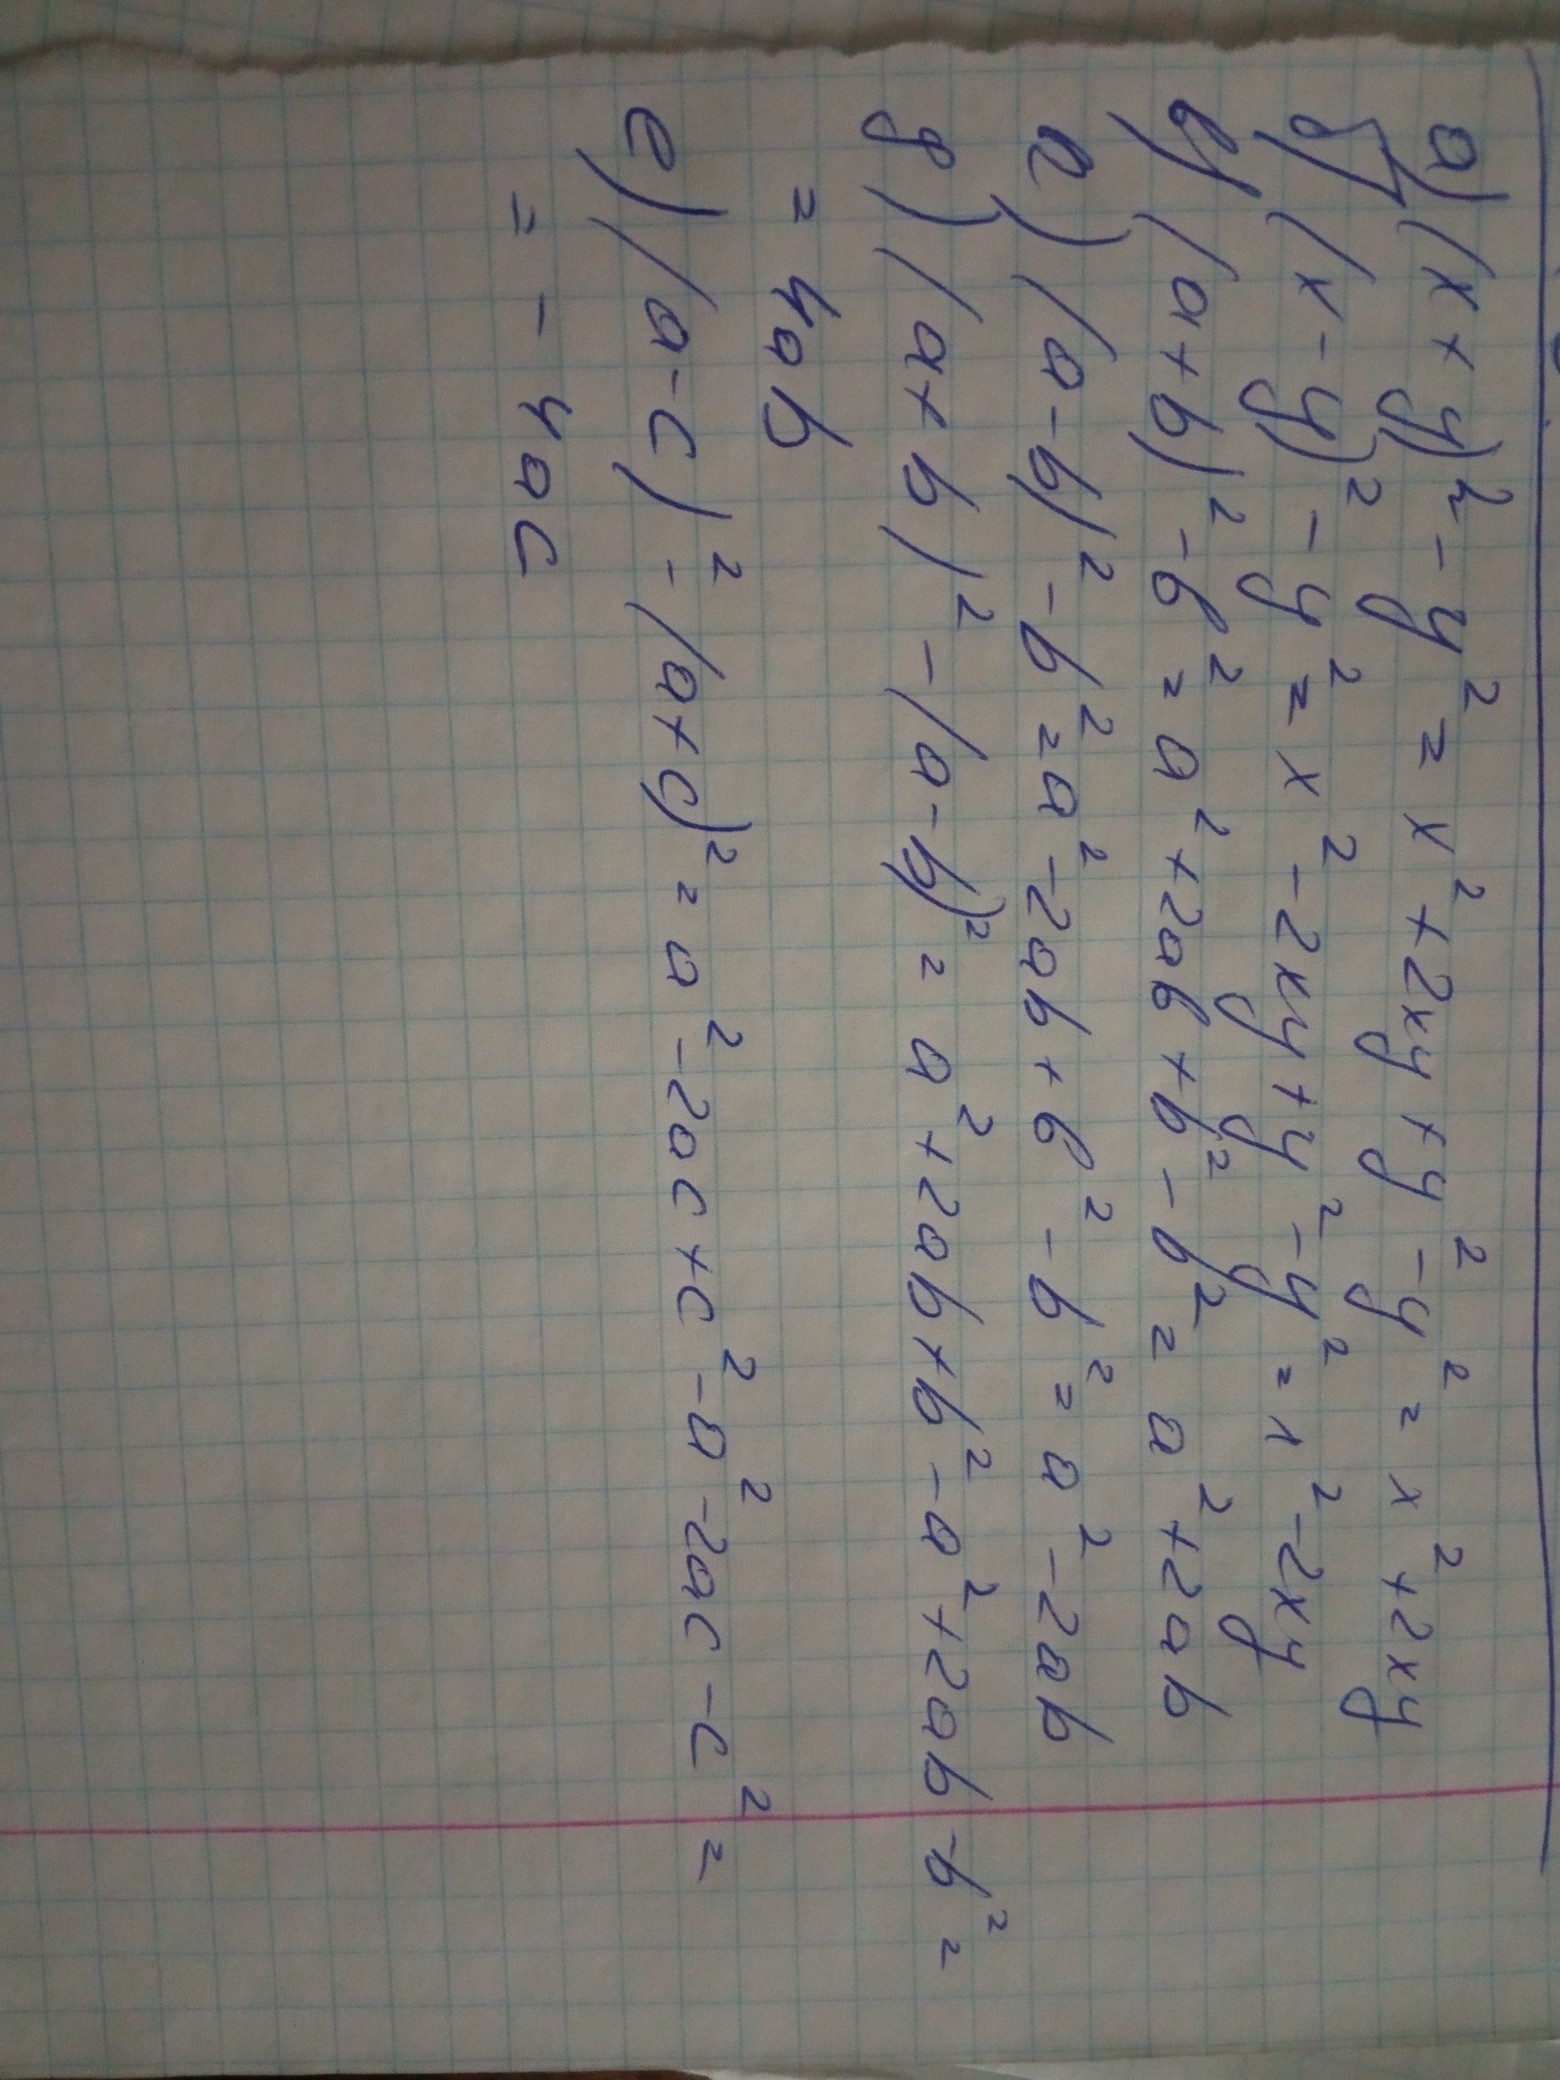 а) (x + y)² - y² = x² + 2xy + y² - y² = x² + 2xy
б) (x - y)² - y² = x² - 2xy + y² - y² = x² - 2xy
в) (a + b)² - b² = a² + 2ab + b² - b² = a² + 2ab
г) (a - b)² - b² = a² - 2ab + b² - b² = a² - 2ab
д) (a + b)² - (a - b)² = a² + 2ab + b² - a² + 2ab - b² =
= 4ab
е) (a - c)² - (a + c)² = a² - 2ac + c² - a² - 2ac - c² =
= - 4ac